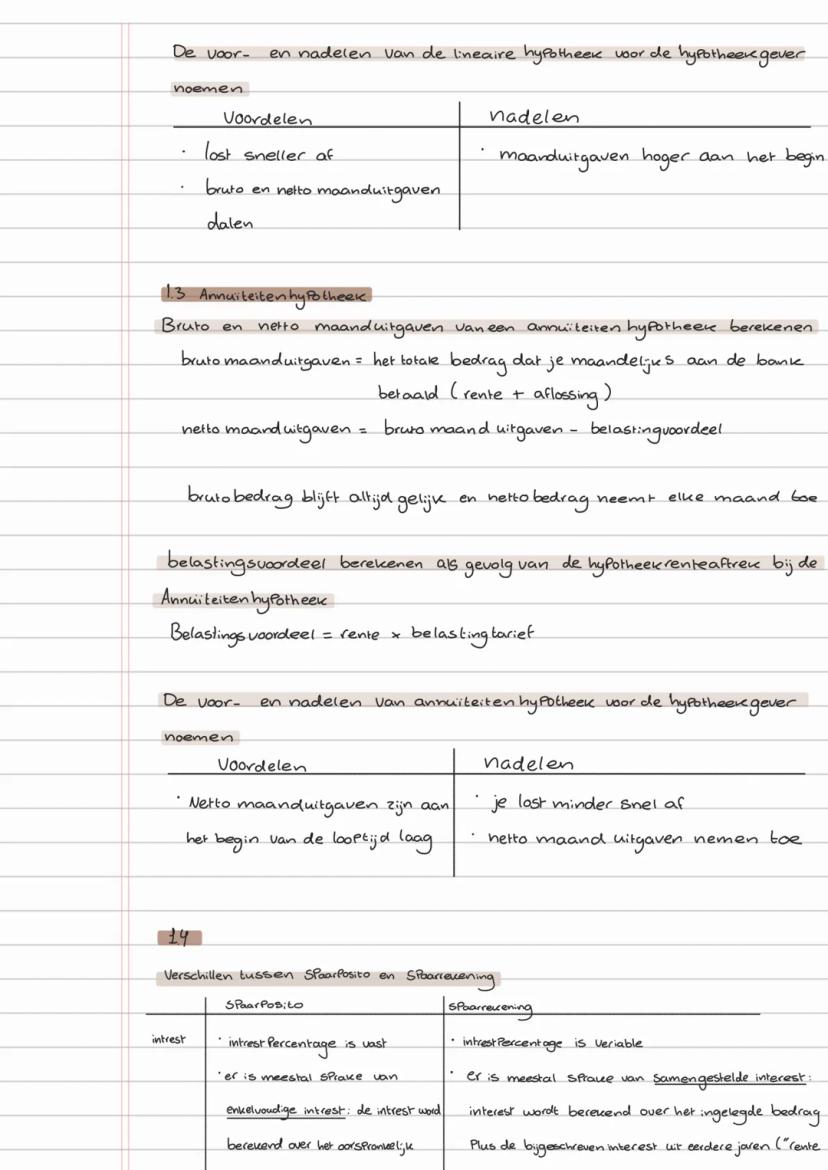 De voor- en nadelen van de lineaire hypotheek voor de hypotheekgever
noemen
Voordelen nadelen
· lost sneller af · maanduitgaven hoger aan het begin
· bruto en netto maanduitgaven
dalen
1.3 Annuïteitenhypotheek
Bruto en netto maanduitgaven van een annuïteiten hypotheek berekenen
bruto maanduitgaven = het totale bedrag dat je maandelijks aan de bank
betaald (rente + aflossing)
netto maanduitgaven = bruto maand uitgaven - belastingvoordeel
bruto bedrag blijft altijd gelijk en netto bedrag neemt elke maand toe
belastingsvoordeel berekenen als gevolg van de hypotheekrenteaftrek bij de
Annuïteitenhypotheek
Belastingsvoordeel = rente × belastingtarief
De voor- en nadelen van annuïteiten hypotheek voor de hypotheekgever
noemen
Voordelen nadelen
· Netto maanduitgaven zijn aan · je lost minder snel af
het begin van de looptijd laag · netto maand uitgaven nemen toe
1.4
Verschillen tussen Spaarposito en Spaarrekening
Spaarposito Spaarrekening
intrest · intrest percentage is vast · intrest percentage is veriable
· er is meestal sprake van · er is meestal sprake van samengestelde interest:
enkelvoudige intrest: de intrest word interest wordt berekend over het ingelegde bedrag
berekend over het oorspronkelijk Plus de bijgeschreven interest uit eerdere jaren ("rente